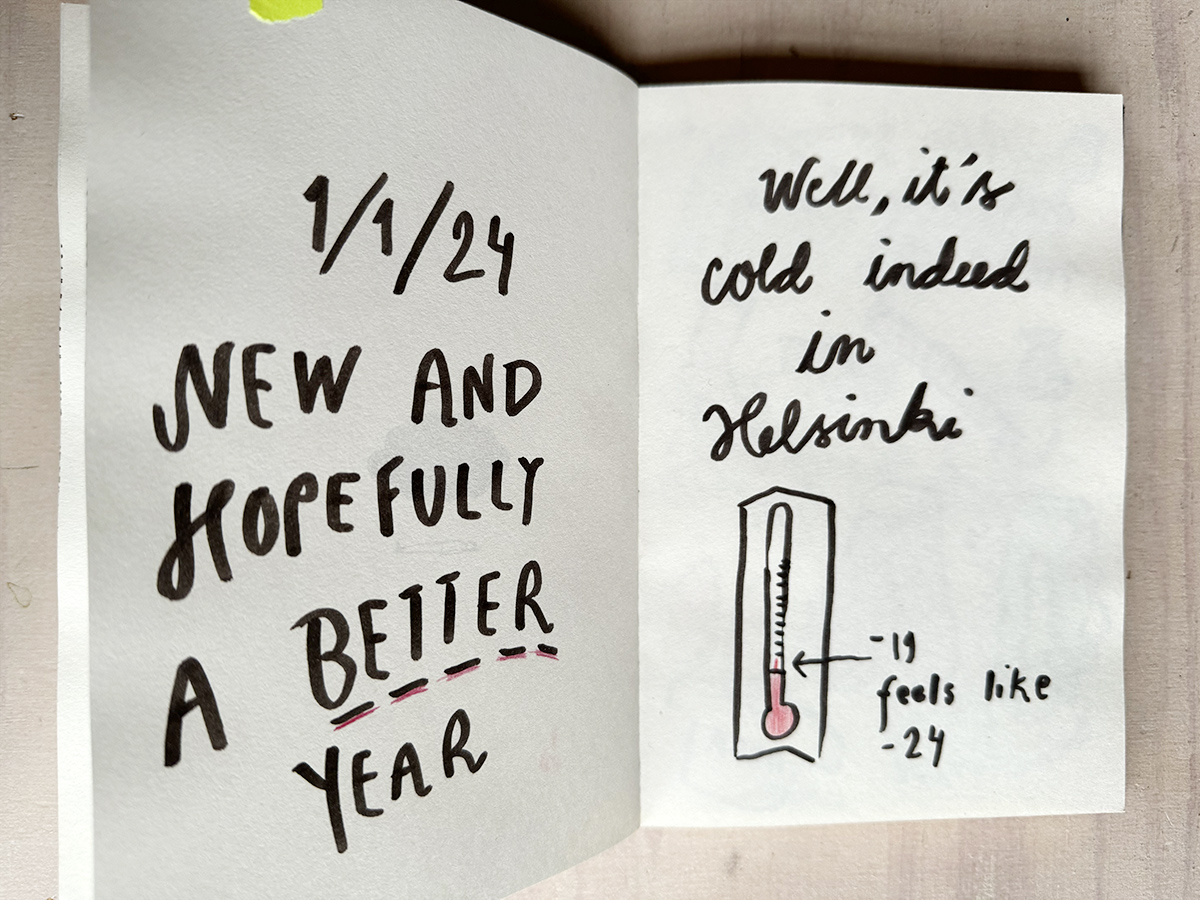 1/1/24
NEW AND
HOPEFULLY
A BETTER
YEAR
Well, it's
cold indeed
in
Helsinki
-19
feels like
-24